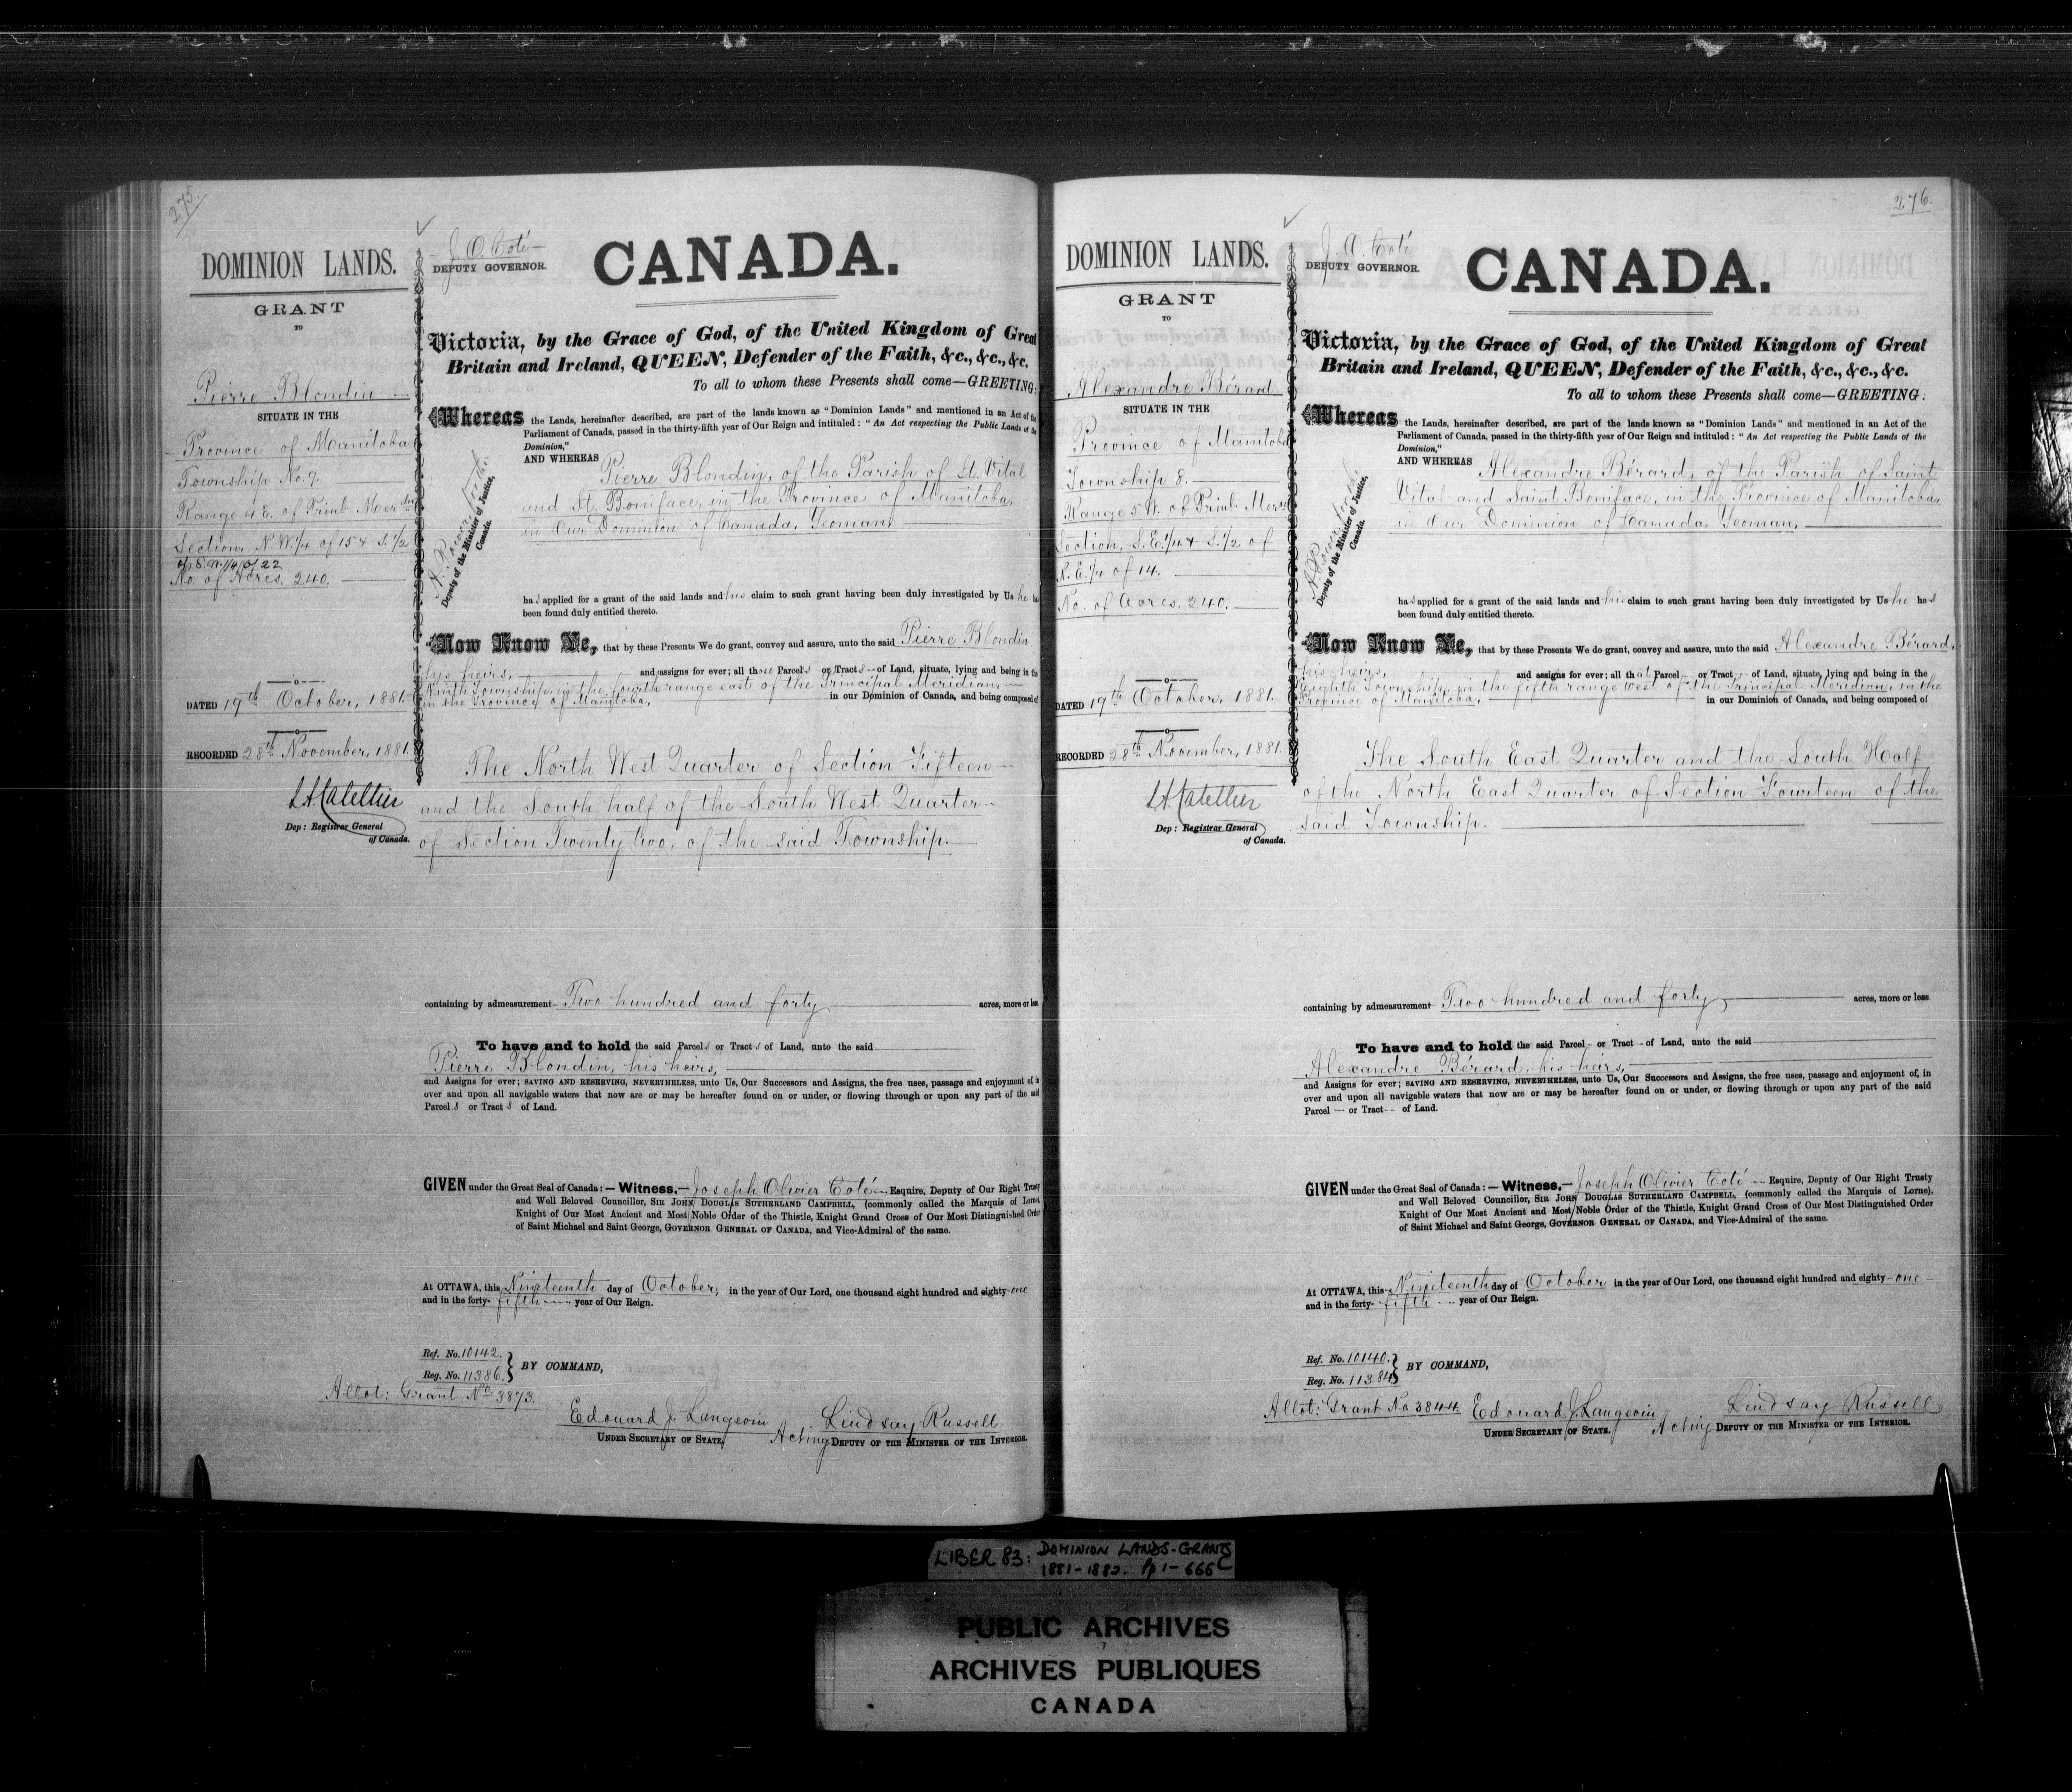 275.
DOMINION LANDS.
GRANT
TO
Pierre Blondin
SITUATE IN THE
Province of Manitoba
Township No. 9.
Range 4 E. of Prinl. Merdn
Section, N.W.1/4 of 15 & S.1/2
of S.W.1/4 of 22
No. of Acres, 240.
DATED 19th October, 1881.
RECORDED 28th November, 1881.
L A Catellier
Dep: Registrar General
of Canada.
J. O. Coté
DEPUTY GOVERNOR.
CANADA.
Victoria, by the Grace of God, of the United Kingdom of Great
Britain and Ireland, QUEEN, Defender of the Faith, &c., &c., &c.
To all to whom these Presents shall come—GREETING:
Whereas the Lands, hereinafter described, are part of the lands known as "Dominion Lands" and mentioned in an Act of the
Parliament of Canada, passed in the thirty-fifth year of Our Reign and intituled: "An Act respecting the Public Lands of the
Dominion,"
AND WHEREAS Pierre Blondin, of the Parish of St. Vital
and St. Boniface, in the Province of Manitoba,
in Our Dominion of Canada, Yeoman,
A. Power for the
Deputy of the Minister of Justice,
Canada.
has applied for a grant of the said lands and his claim to such grant having been duly investigated by Us he has
been found duly entitled thereto.
Now Know Ye, that by these Presents We do grant, convey and assure, unto the said Pierre Blondin
his heirs, and assigns for ever; all those Parcels or Tracts of Land, situate, lying and being in the
Ninth Township, in the fourth range east of the Principal Meridian,
in the Province of Manitoba, in our Dominion of Canada, and being composed of
The North West Quarter of Section Fifteen
and the South half of the South West Quarter
of Section Twenty two, of the said Township.
containing by admeasurement Two hundred and forty acres, more or less
To have and to hold the said Parcels or Tracts of Land, unto the said
Pierre Blondin, his heirs,
and Assigns for ever; SAVING AND RESERVING, NEVERTHELESS, unto Us, Our Successors and Assigns, the free uses, passage and enjoyment of, in
over and upon all navigable waters that now are or may be hereafter found on or under, or flowing through or upon any part of the said
Parcels or Tracts of Land.
GIVEN under the Great Seal of Canada:—Witness,—Joseph Olivier Coté Esquire, Deputy of Our Right Trusty
and Well Beloved Councillor, SIR JOHN DOUGLAS SUTHERLAND CAMPBELL, (commonly called the Marquis of Lorne),
Knight of Our Most Ancient and Most Noble Order of the Thistle, Knight Grand Cross of Our Most Distinguished Order
of Saint Michael and Saint George, GOVERNOR GENERAL OF CANADA, and Vice-Admiral of the same.
At OTTAWA, this Nineteenth day of October, in the year of Our Lord, one thousand eight hundred and eighty-one
and in the forty-fifth year of Our Reign.
Ref. No. 10142.
Reg. No. 11386.
BY COMMAND,
Allot: Grant No. 3873.
Edouard J. Langevin
UNDER SECRETARY OF STATE.
Lindsay Russell
Acting DEPUTY OF THE MINISTER OF THE INTERIOR.
276.
DOMINION LANDS.
GRANT
TO
Alexandre Bérard
SITUATE IN THE
Province of Manitoba
Township 8.
Range 5 W. of Prinl. Merdn
Section, S.E.1/4 & S.1/2 of
N.E.1/4 of 14.
No. of Acres, 240.
DATED 19th October, 1881.
RECORDED 28th November, 1881.
L A Catellier
Dep: Registrar General
of Canada.
J. O. Coté
DEPUTY GOVERNOR.
CANADA.
Victoria, by the Grace of God, of the United Kingdom of Great
Britain and Ireland, QUEEN, Defender of the Faith, &c., &c., &c.
To all to whom these Presents shall come—GREETING:
Whereas the Lands, hereinafter described, are part of the lands known as "Dominion Lands" and mentioned in an Act of the
Parliament of Canada, passed in the thirty-fifth year of Our Reign and intituled: "An Act respecting the Public Lands of the
Dominion,"
AND WHEREAS Alexandre Bérard, of the Parish of Saint
Vital and Saint Boniface, in the Province of Manitoba,
in Our Dominion of Canada, Yeoman,
A. Power for the
Deputy of the Minister of Justice,
Canada.
has applied for a grant of the said lands and his claim to such grant having been duly investigated by Us he has
been found duly entitled thereto.
Now Know Ye, that by these Presents We do grant, convey and assure, unto the said Alexandre Bérard,
his heirs, and assigns for ever; all that Parcel or Tract of Land, situate, lying and being in the
Eighth Township, in the fifth range west of the Principal Meridian, in the
Province of Manitoba, in our Dominion of Canada, and being composed of
The South East Quarter and the South Half
of the North East Quarter of Section Fourteen of the
said Township.
containing by admeasurement Two hundred and forty, acres, more or less
To have and to hold the said Parcel or Tract of Land, unto the said
Alexandre Bérard, his heirs,
and Assigns for ever; SAVING AND RESERVING, NEVERTHELESS, unto Us, Our Successors and Assigns, the free uses, passage and enjoyment of, in
over and upon all navigable waters that now are or may be hereafter found on or under, or flowing through or upon any part of the said
Parcel or Tract of Land.
GIVEN under the Great Seal of Canada:—Witness,—Joseph Olivier Coté Esquire, Deputy of Our Right Trusty
and Well Beloved Councillor, SIR JOHN DOUGLAS SUTHERLAND CAMPBELL, (commonly called the Marquis of Lorne),
Knight of Our Most Ancient and Most Noble Order of the Thistle, Knight Grand Cross of Our Most Distinguished Order
of Saint Michael and Saint George, GOVERNOR GENERAL OF CANADA, and Vice-Admiral of the same.
At OTTAWA, this Nineteenth day of October in the year of Our Lord, one thousand eight hundred and eighty-one
and in the forty-fifth year of Our Reign.
Ref. No. 10140.
Reg. No. 11384.
BY COMMAND,
Allot: Grant No 3844.
Edouard J. Langevin
UNDER SECRETARY OF STATE.
Lindsay Russell
Acting DEPUTY OF THE MINISTER OF THE INTERIOR.
LIBER 83: DOMINION LANDS-GRANTS
1881-1882. Pp 1-666
PUBLIC ARCHIVES
ARCHIVES PUBLIQUES
CANADA